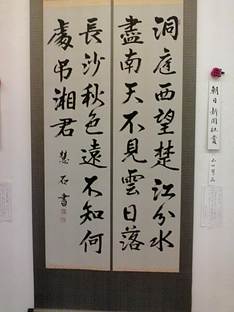 朝日新聞社賞
洞庭西望楚江分水
盡南天不見雲日落
長沙秋色遠不知何
處吊湘君 慧石書